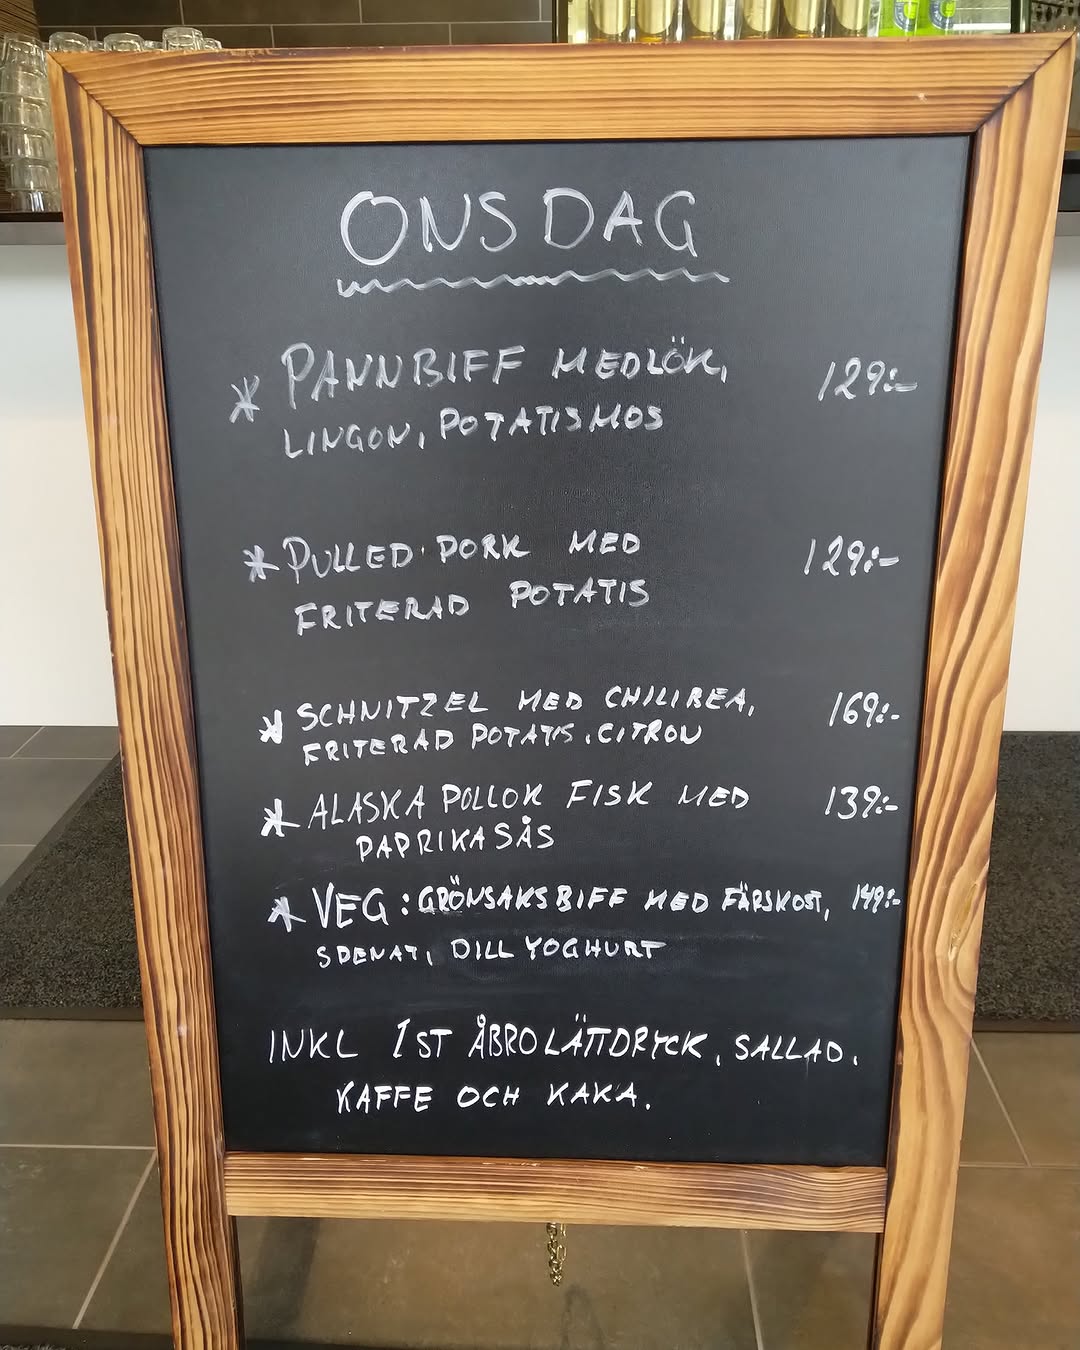 ONSDAG
* PANNBIFF MED LÖK, 129:-
LINGON, POTATISMOS
* PULLED PORK MED 129:-
FRITERAD POTATIS
* SCHNITZEL MED CHILIBEA, 169:-
FRITERAD POTATIS, CITRON
* ALASKA POLLOK FISK MED 139:-
PAPRIKASÅS
* VEG: GRÖNSAKSBIFF MED FÄRSKOST, 149:-
SPENAT, DILL YOGHURT
INKL 1 ST ÅBRO LÄTTDRYCK, SALLAD,
KAFFE OCH KAKA.